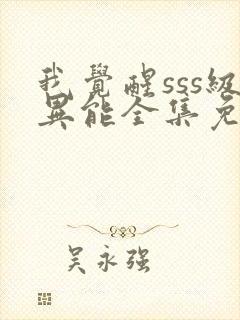 我觉醒sss级
异能全集免
吴永强